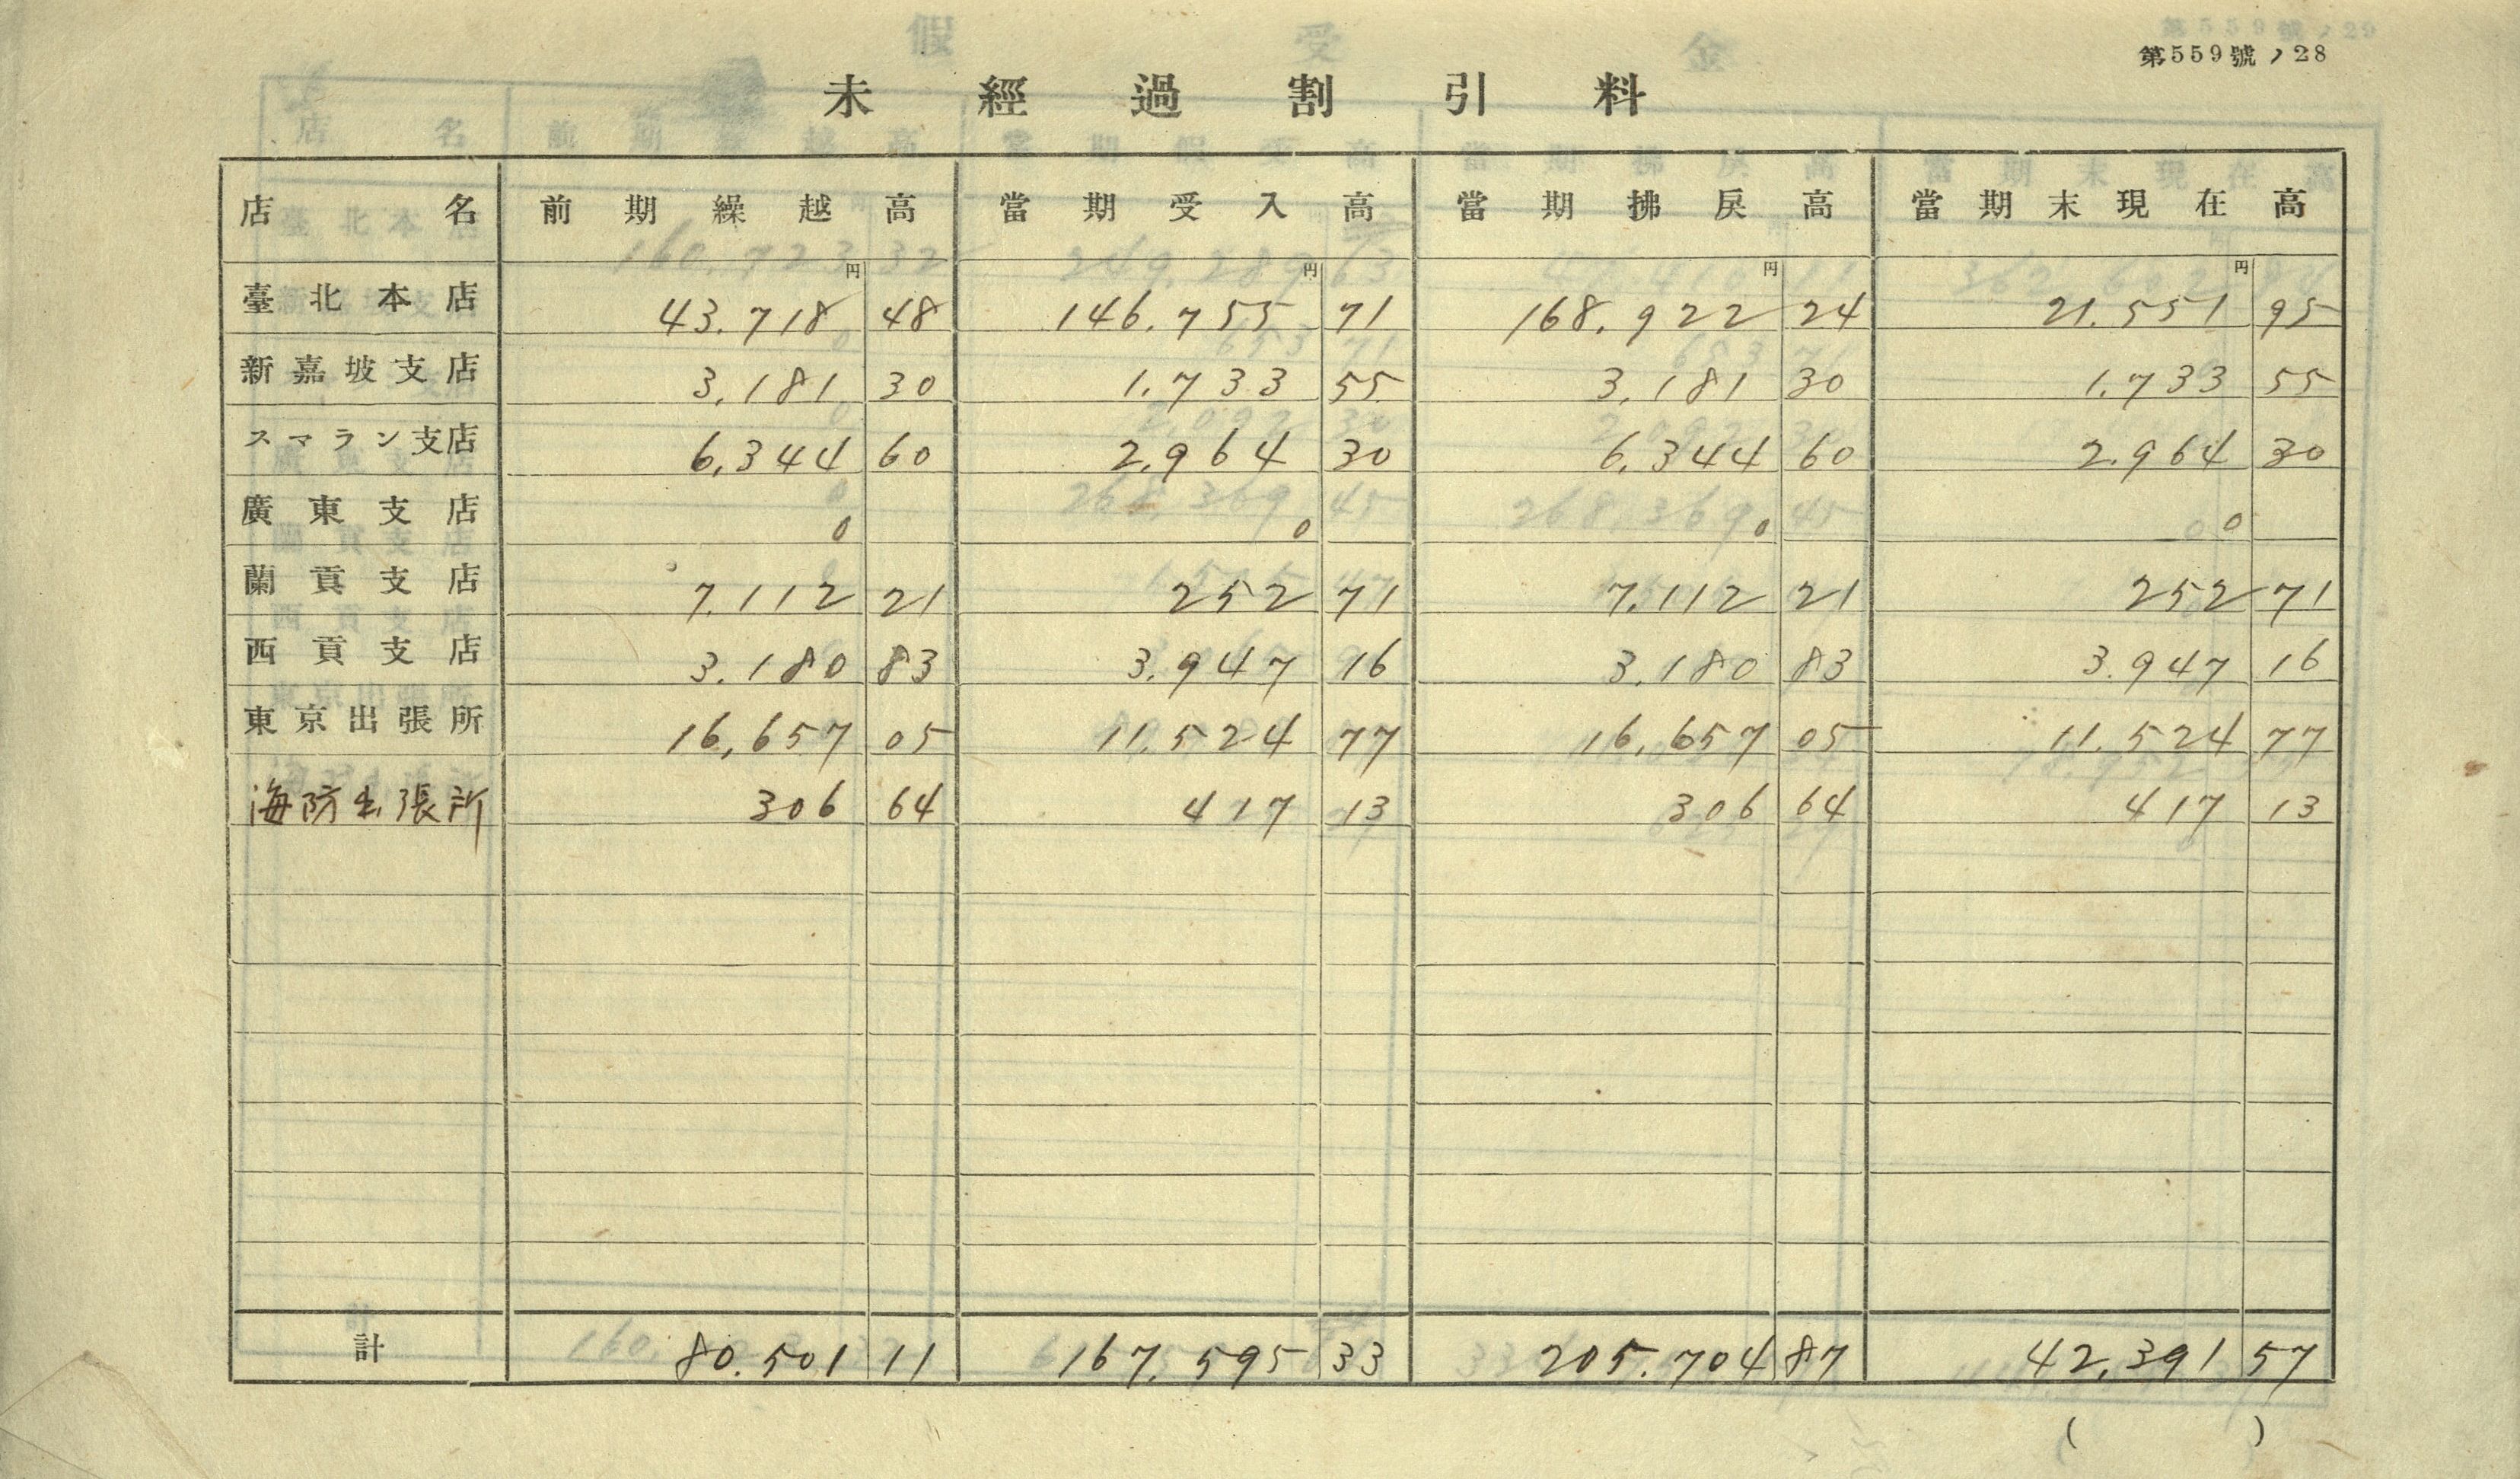 第559號ノ28
未經過割引料
店名 前期繰越高 當期受入高 當期拂戾高 當期末現在高
円 円 円 円
臺北本店 43.718 48 146.755 71 168.922 24 21.551 95
新嘉坡支店 3,181 30 1.733 55 3,181 30 1.733 55
スマラン支店 6,344 60 2.964 30 6,344 60 2.964 30
廣東支店 0 0 0 0
蘭貢支店 7.112 21 252 71 7.112 21 252 71
西貢支店 3.180 83 3.947 16 3.180 83 3.947 16
東京出張所 16,657 05 11.524 77 16,657 05 11.524 77
海防出張所 306 64 417 13 306 64 417 13
計 80.501 11 167.595 33 205.704 87 42,391 57
( )